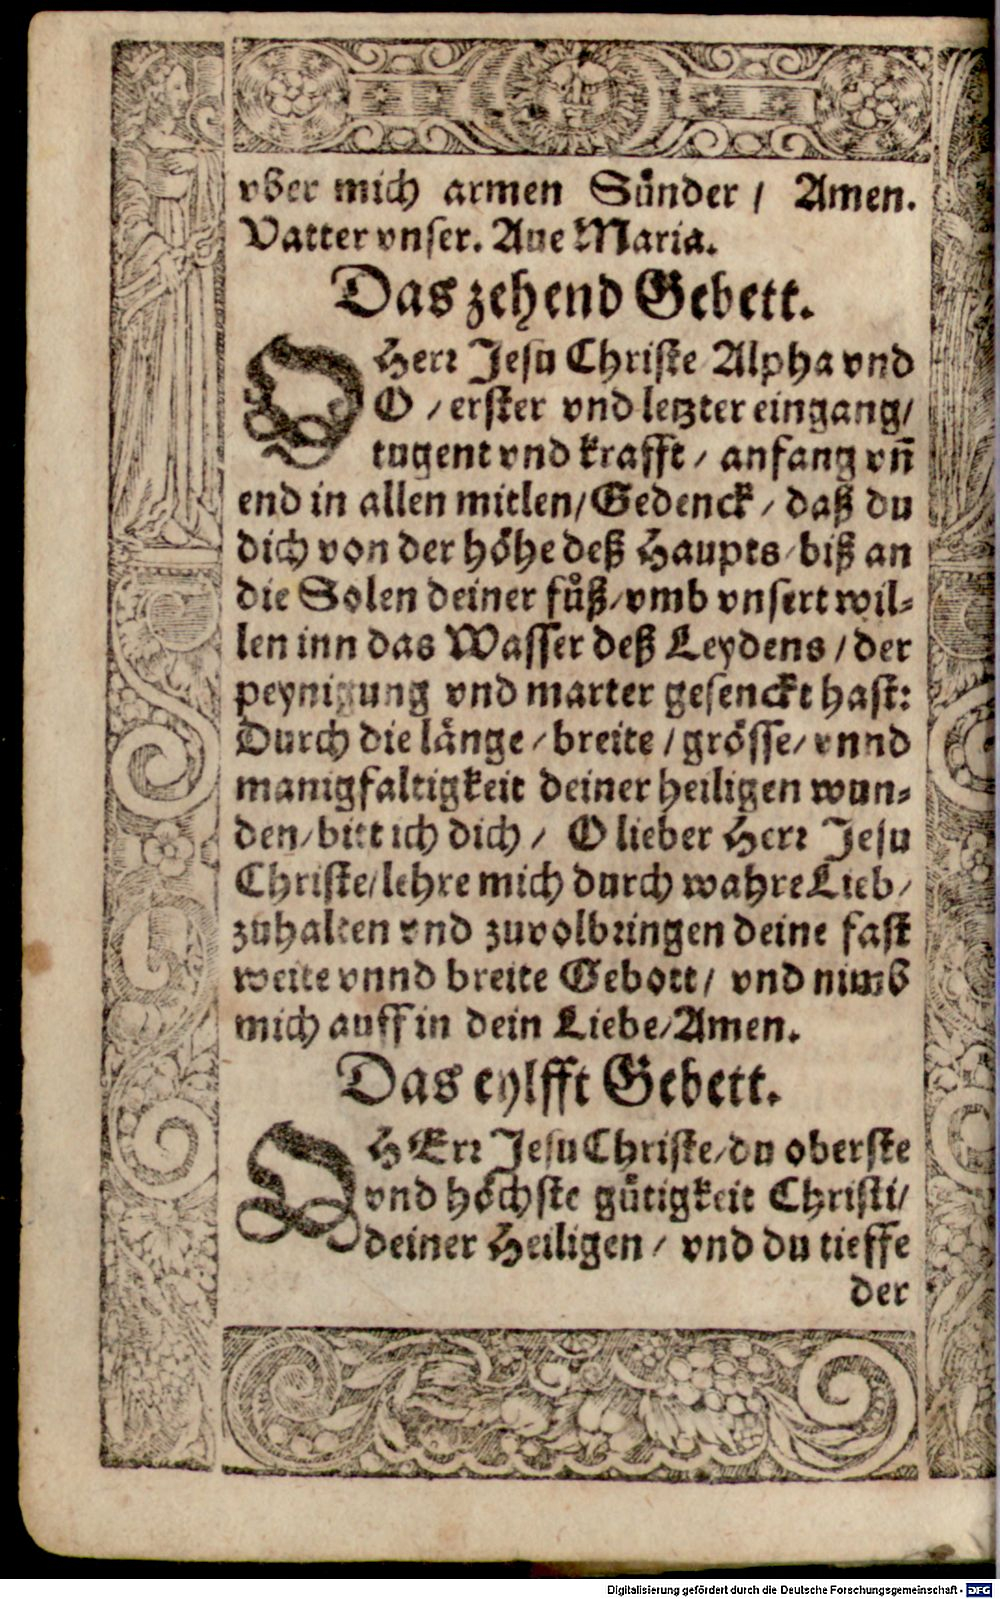 vber mich armen Sünder / Amen.
Vatter vnser. Aue Maria.
Das zehend Gebett.
O Herr Jesu Christe Alpha vnd
O / erster vnd letzter eingang /
tugent vnd krafft / anfang vn̄
end in allen mitlen / Gedenck / daß du
dich von der höhe deß Haupts / biß an
die Solen deiner fůß / vmb vnsert wil-
len inn das Wasser deß Leydens / der
peynigung vnd marter gesenckt hast:
Durch die länge / breite / grösse / vnnd
manigfaltigkeit deiner heiligen wun-
den / bitt ich dich / O lieber Herr Jesu
Christe / lehre mich durch wahre Lieb /
zuhalten vnd zuvolbringen deine fast
weite vnnd breite Gebott / vnd nimb
mich auff in dein Liebe / Amen.
Das eylfft Gebett.
O HErr Jesu Christe / du oberste
vnd höchste gütigkeit Christi /
deiner Heiligen / vnd du tieffe
der
Digitalisierung gefördert durch die Deutsche Forschungsgemeinschaft - DFG